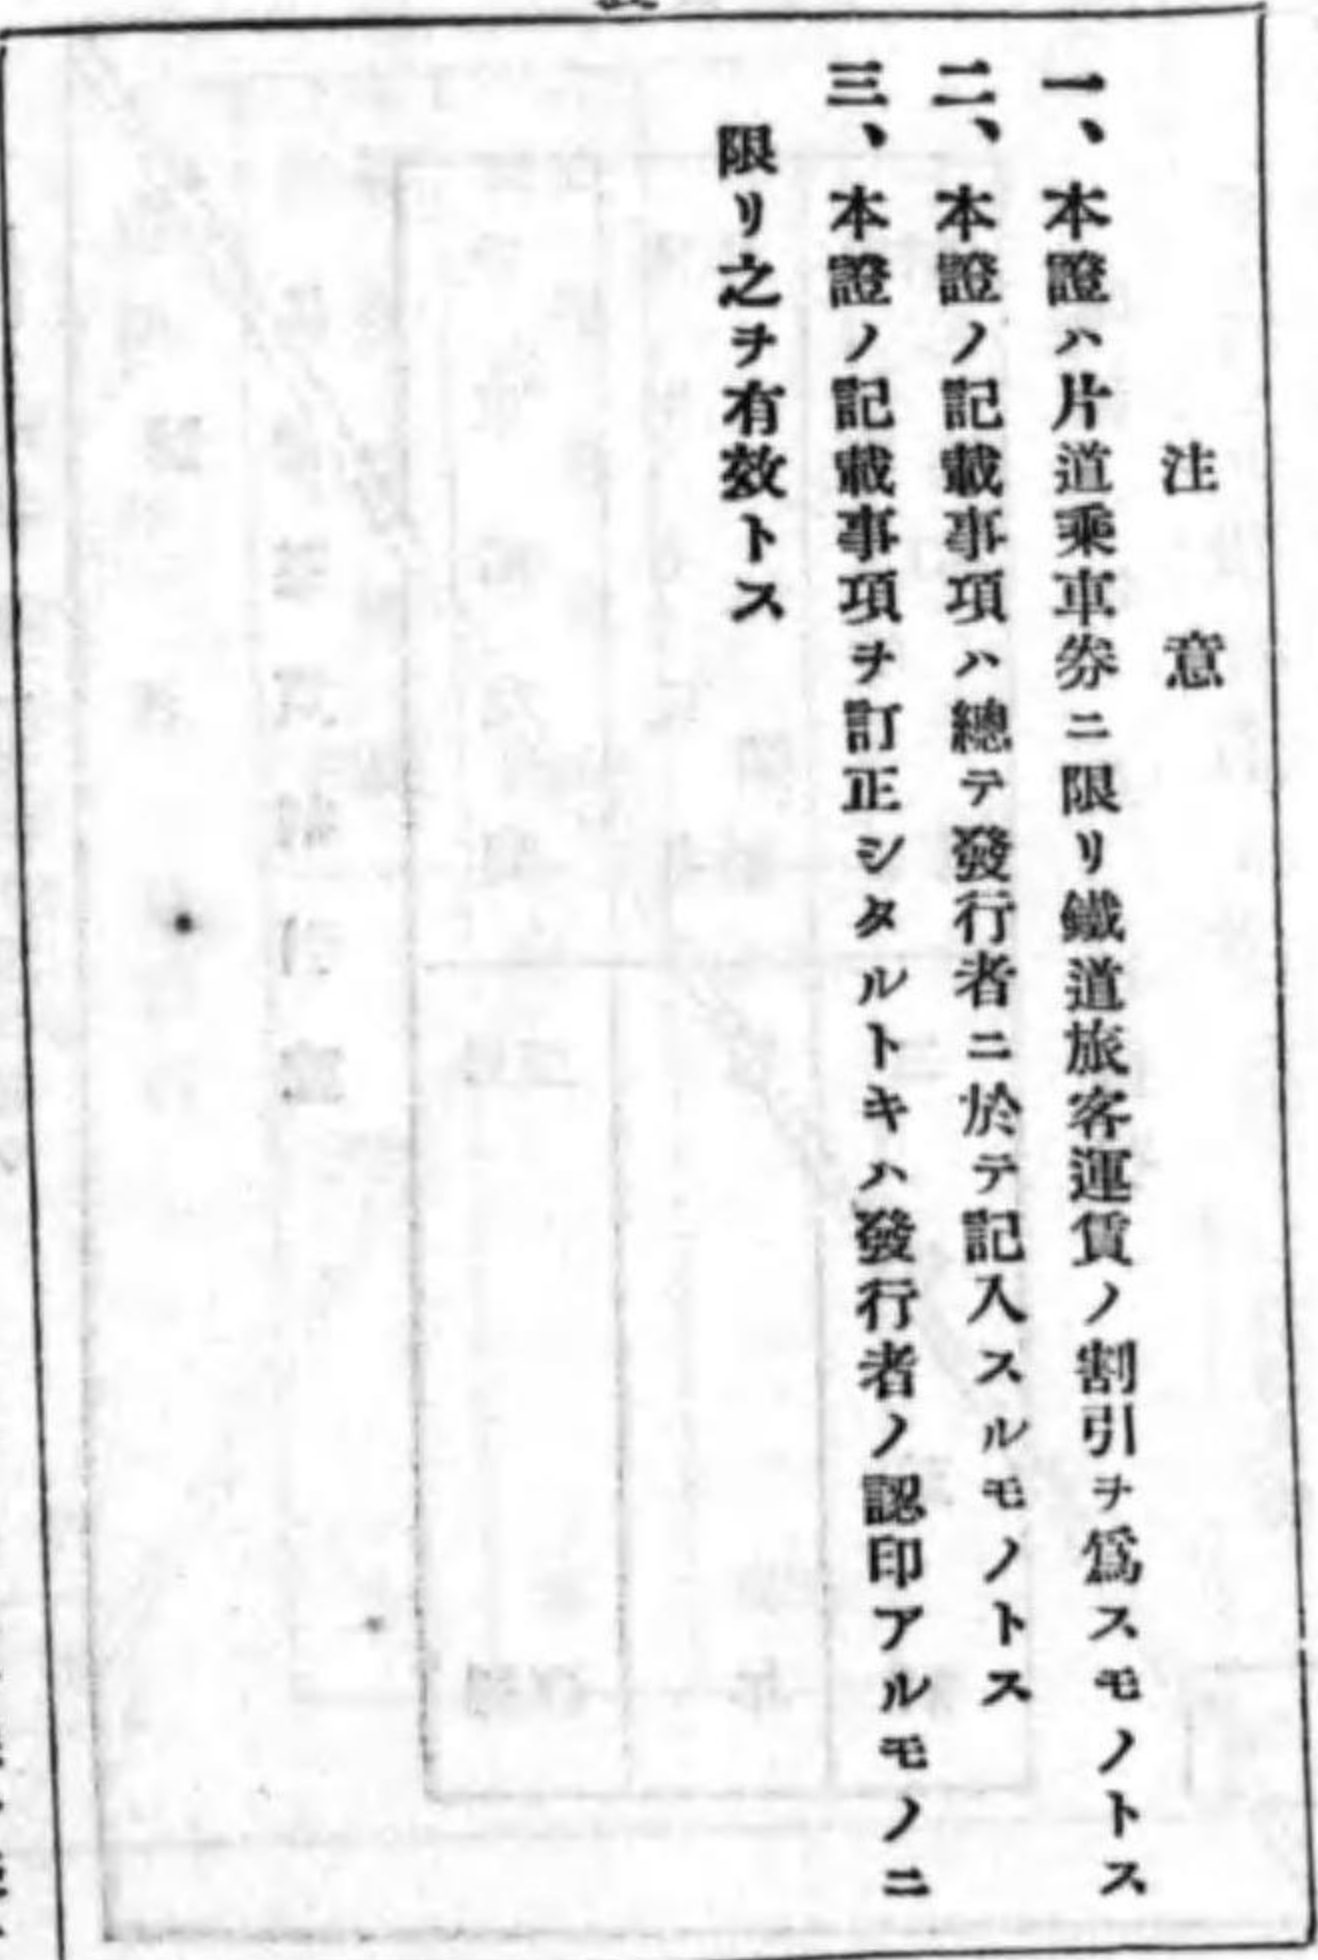 注意
一、本證ハ片道乘車券ニ限リ鐵道旅客運賃ノ割引ヲ爲スモノトス
二、本證ノ記載事項ハ總テ發行者ニ於テ記入スルモノトス
三、本證ノ記載事項ヲ訂正シタルトキハ發行者ノ認印アルモノニ
限リ之ヲ有效トス